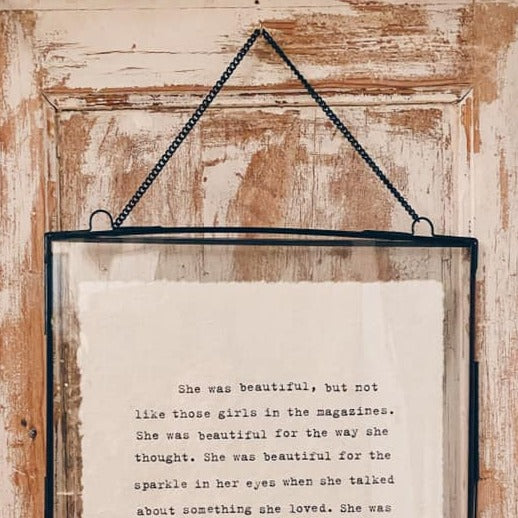 She was beautiful, but not
like those girls in the magazines.
She was beautiful for the way she
thought. She was beautiful for the
sparkle in her eyes when she talked
about something she loved. She was